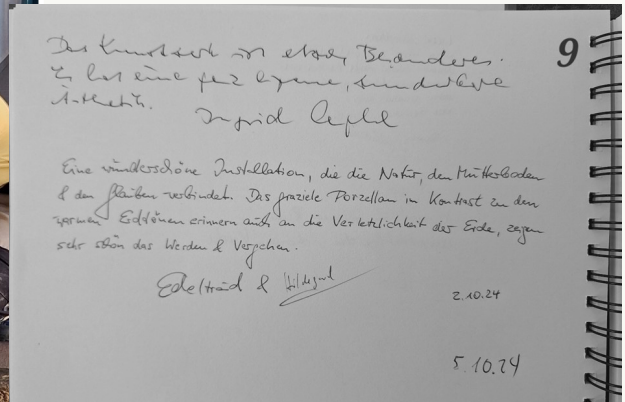 Das Kunstwerk ist etwas Besonderes.
9
Es hat eine ganz eigene, wunderbare
Ästhetik.
Ingrid
Eine wunderschöne Installation, die die Natur, den Mutterboden
& den Glauben verbindet. Das grazile Porzellan im Kontrast zu den
warmen Erdtönen erinnern auch an die Verletzlichkeit der Erde, zeigen
sehr schön das Werden & Vergehen.
Edeltraud & Hildegard
2.10.24
5.10.24